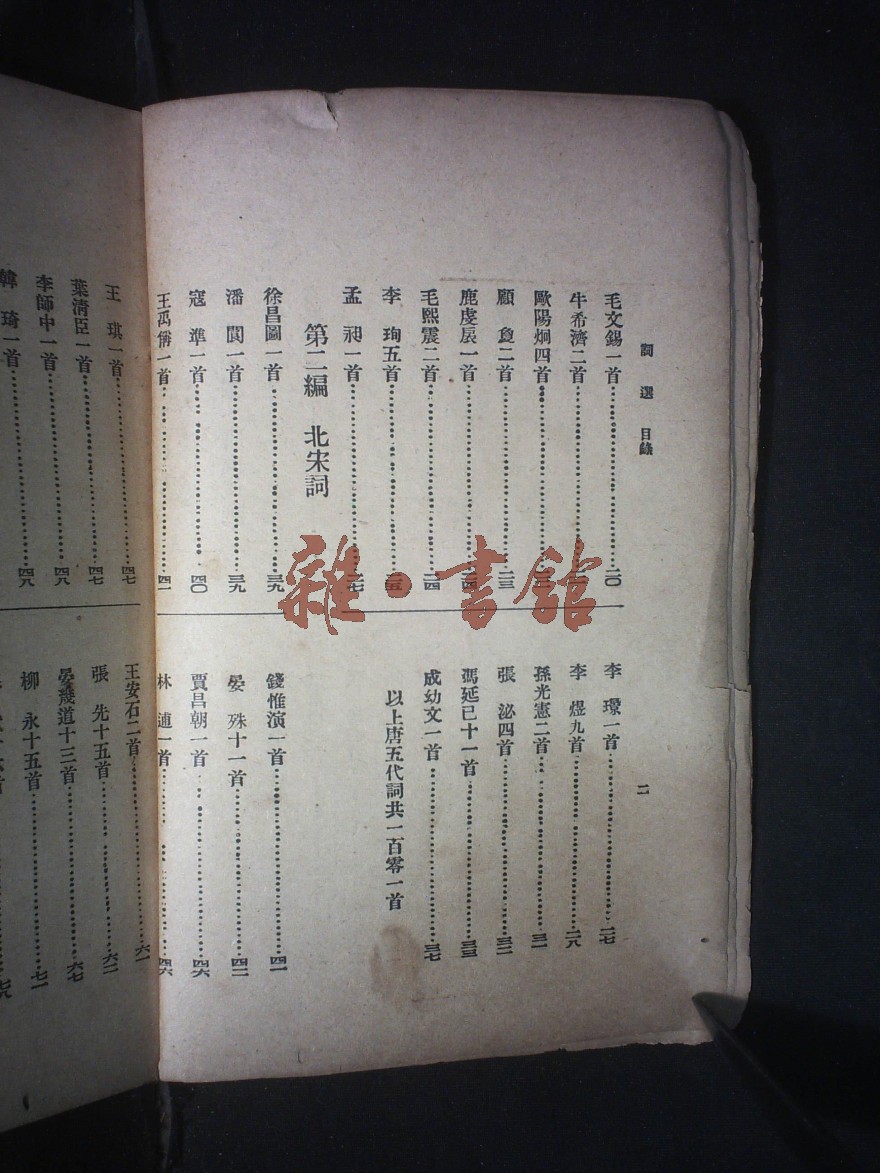 詞選 目錄
二
毛文錫一首 二〇
牛希濟二首
歐陽烱四首
顧敻二首 二三
鹿虔扆一首 二四
毛熙震二首 二四
李珣五首 二五
孟昶一首 二七
李璟一首 二七
李煜九首 二八
孫光憲二首 三一
張泌四首 三二
馮延巳十一首 三三
成幼文一首 三七
以上唐五代詞共一百零一首
第二編 北宋詞
徐昌圖一首 三九
潘閬一首 三九
寇準一首 四〇
王禹偁一首 四一
錢惟演一首 四一
晏殊十一首 四二
賈昌朝一首 四六
林逋一首 四六
王琪一首 四七
葉清臣一首 四七
李師中一首 四八
韓琦一首 四八
王安石二首 六一
張先十五首 六二
晏幾道十三首 六七
柳永十五首 七一
雜·書館